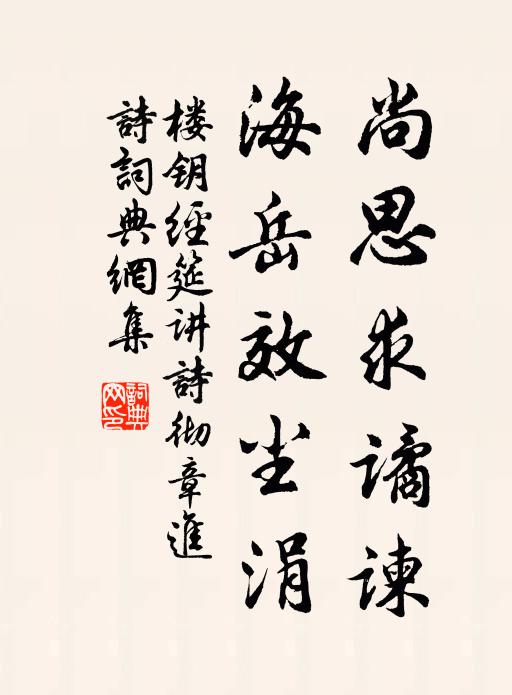 尚思求谲谏
海岳效尘涓
楼钥經筵讲詩彻章進
詩詞典網集
詞典网印